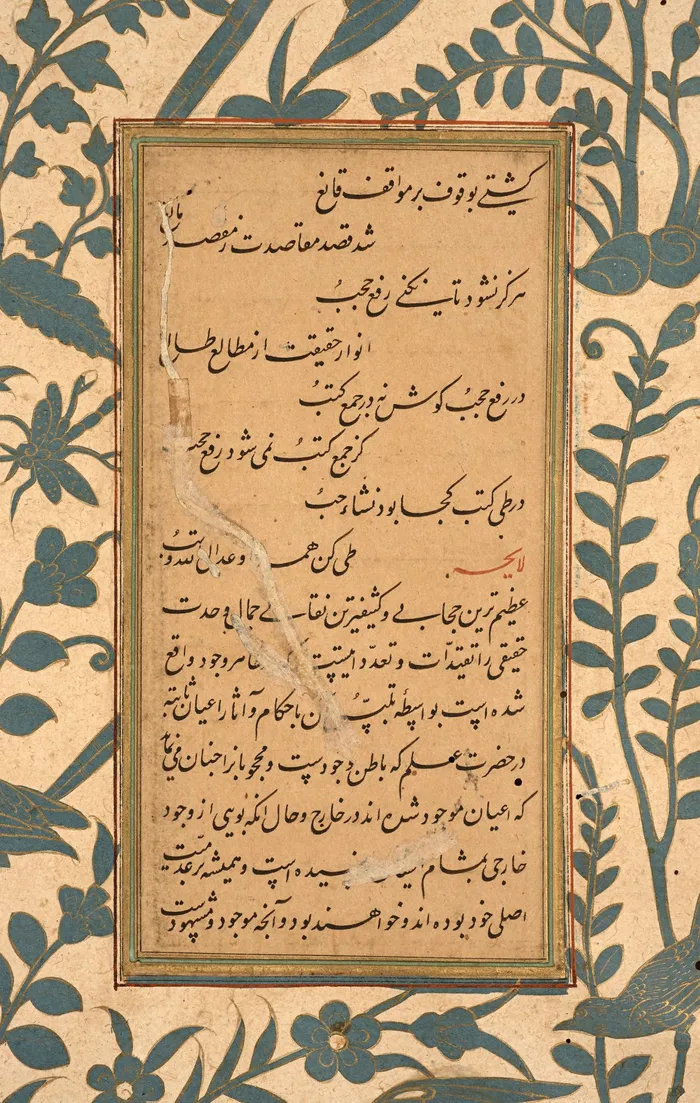 گشتی بوقوف بر مواقف قانع
شد قصد مقاصدت ز مقصد مانع
هرگز نشود تا نکنی رفع حجب
انوار حقیقت از مطالع طالع
در رفع حجب کوش نه در جمع کتب
کز جمع کتب نمی شود رفع حجب
در طی کتب کجا بود نشاء حب
طی کن همه و عد الی الله و تب
لایحه
عظیم ترین حجابی و کثیفترین نقابی جمال وحدت
حقیقی را تقیدات و تعدداتیست که در ظاهر وجود واقع
شده است بواسطه تلبس آن باحکام و آثار اعیان ثابته
در حضرت علم که باطن وجودست و محجوبانرا چنان می نماید
که اعیان موجود شده اند در خارج و حال آنکه بویی از وجود
خارجی بمشام ایشان نرسیده است و همیشه بر عدمیت
اصلی خود بوده اند و خواهند بود و آنچه موجود و مشهودست